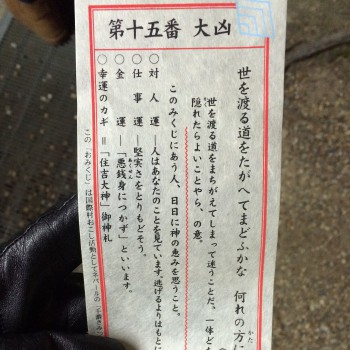 第十五番 大凶
世を渡る道をたがへてまどふかな 何れの方に
世を渡る道をまちがえてしまって迷うことだ。一体ど
隠れたらよいことやら、の意。
このみくじにあう人、日日に神の恵みを思うこと。
○対人運―人はあなたのことを見ています。逃げるよりはもとに
○仕事運―堅実さをとりもどそう。
○金 運―「悪銭身につかず」といいます。
○幸運のカギ＝「住吉大神」御神札
この「おみくじ」は国際村おこし活動としてネパールの